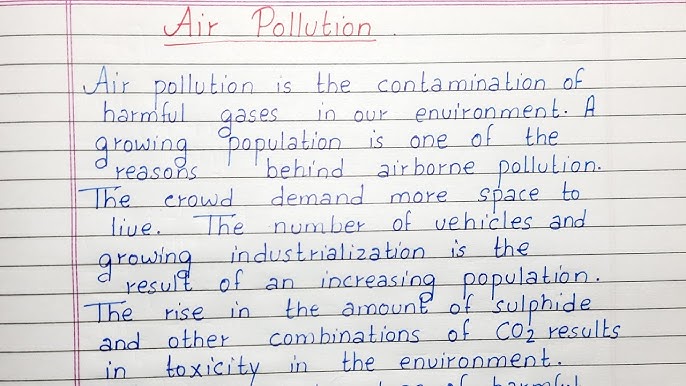 Air Pollution.
Air pollution is the contamination of
harmful gases in our environment. A
growing population is one of the
reasons behind airborne pollution.
The crowd demand more space to
live. The number of vehicles and
growing industrialization is the
result of an increasing population.
The rise in the amount of sulphide
and other combinations of CO2 results
in toxicity in the environment.
of harmful